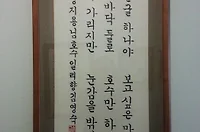 굴 하나야 보고싶은 마
바닥 둘로 호수만 하
가리지만 눈감을 밖
지용님호수